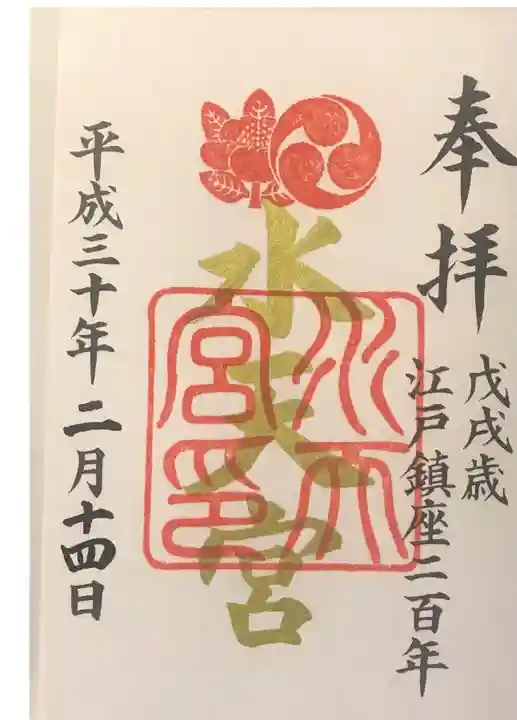 奉拝
戊戌歳
江戸鎮座二百年
水天宮
水天宮印
平成三十年二月十四日